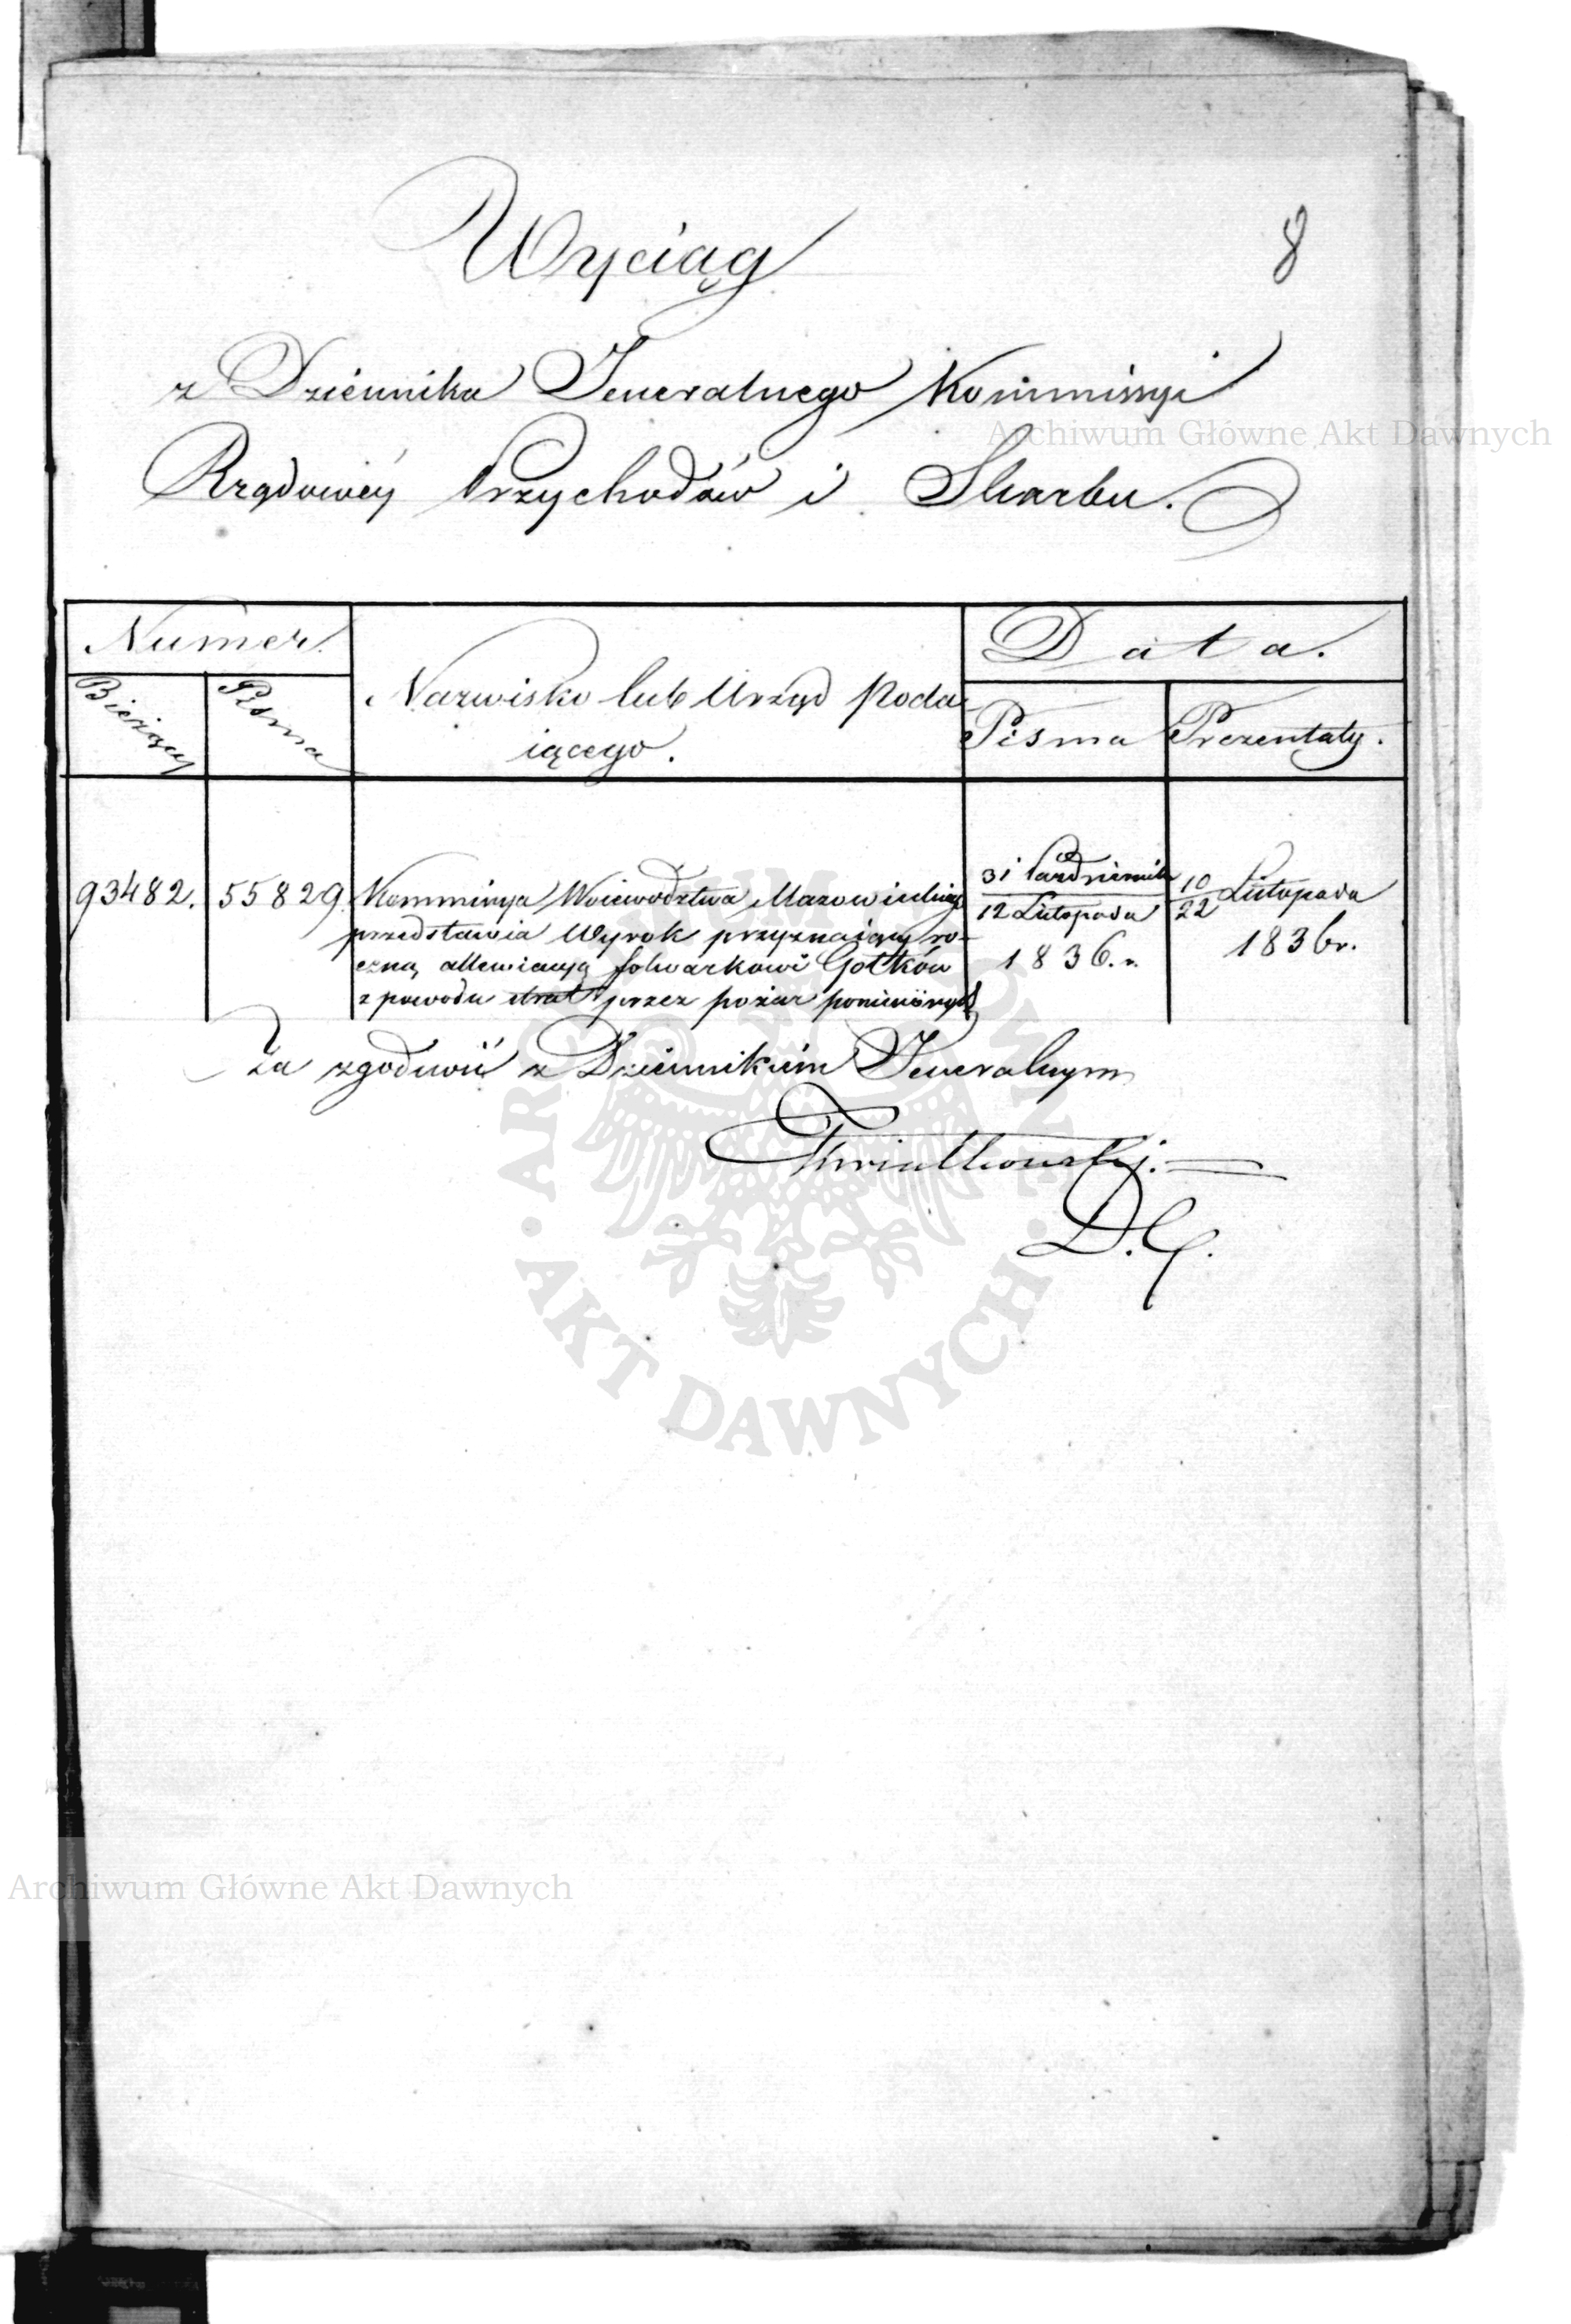 Wyciąg
8
z Dziennika Jeneralnego Kommissyi
Rządowéy Przychodów i Skarbu.
Numer.
Bieżący
Pisma
Nazwisko lub Urząd Poda-
iącego.
Data.
Pisma
Prezentaty.
93482.
55829.
Kommissya Woiewodztwa Mazowieckiego
przedstawia Wyrok przyznaiący ro-
czną allewiacyą folwarkowi Gołków
z powodu strat przez pożar poniesionych
31 Października
12 Listopada
1836.r.
10
22 Listopada
1836r.
Za zgodność z Dziennikiem Jeneralnym
Kwiatkowski.
D.G.
Archiwum Główne Akt Dawnych
Archiwum Główne Akt Dawnych
AKT DAWNYCH